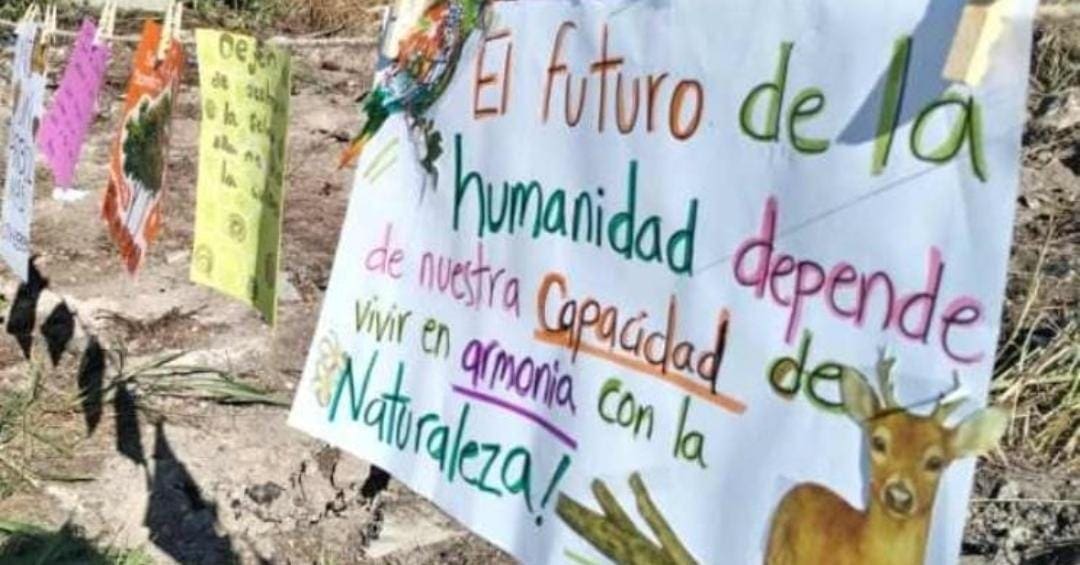 El futuro de la
humanidad depende
de nuestra Capacidad de
vivir en armonia con la
Naturaleza!
Dejen
de
la
la